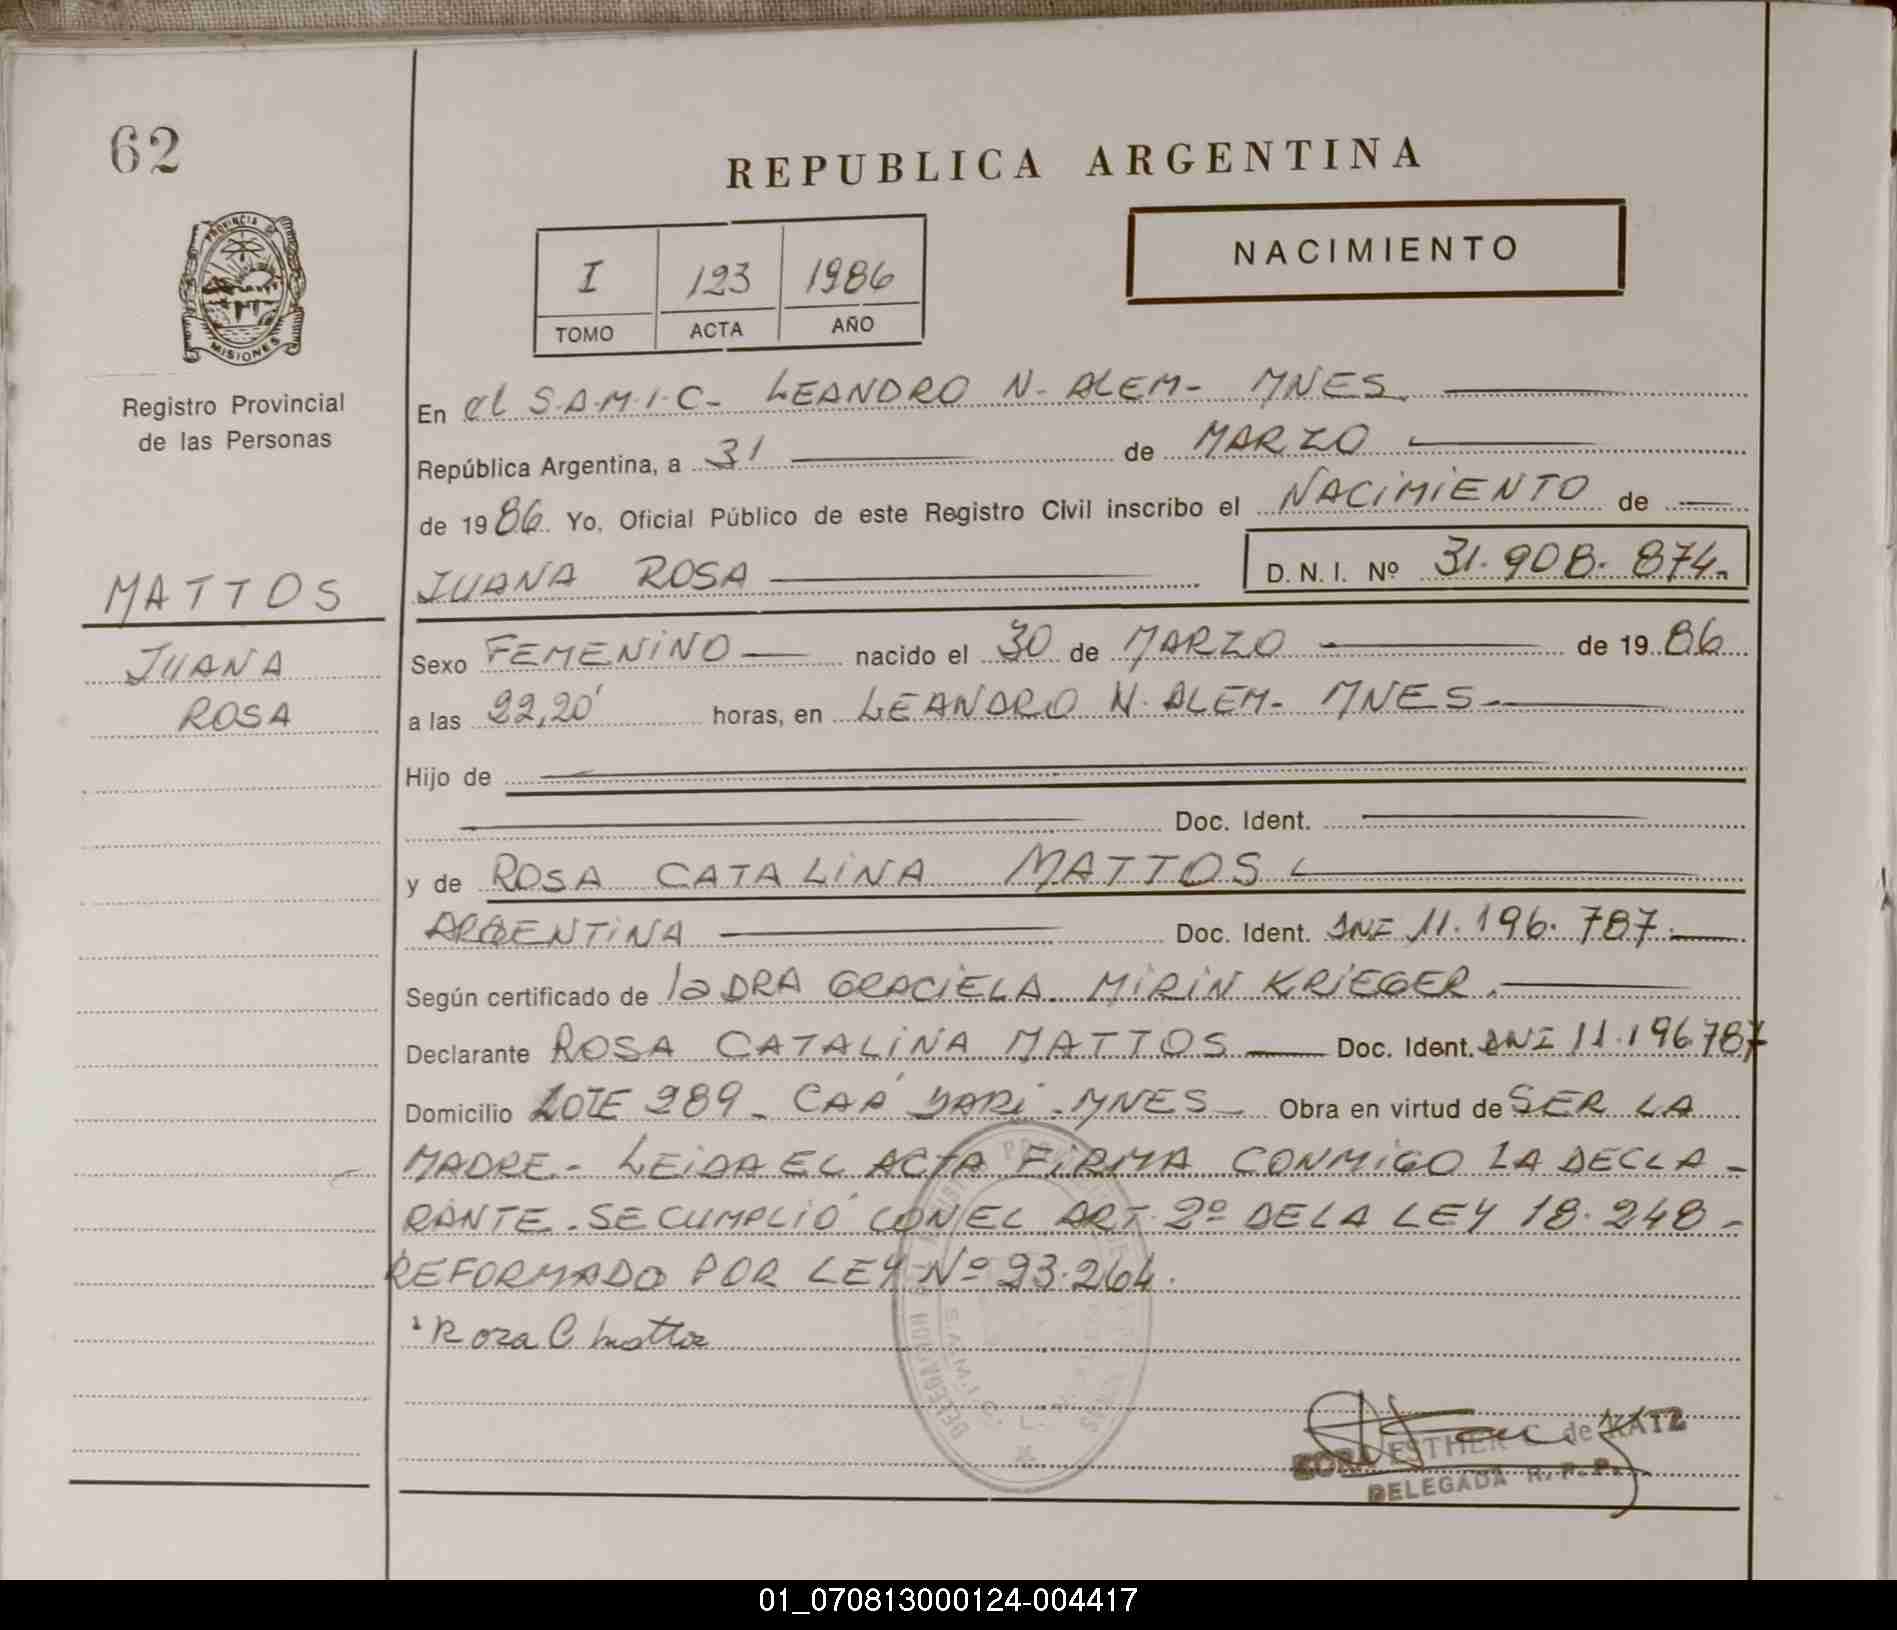 62
REPUBLICA ARGENTINA
NACIMIENTO
I 123 1986
TOMO ACTA AÑO
PROVINCIA DE
MISIONES
Registro Provincial
de las Personas
MATTOS
JUANA
ROSA
En el S.A.M.I.C- LEANDRO N. ALEM- MNES.
República Argentina, a 31 de MARZO
de 1986. Yo, Oficial Público de este Registro Civil inscribo el NACIMIENTO de
JUANA ROSA D. N. I. Nº 31.908.874.
Sexo FEMENINO nacido el 30 de MARZO de 1986
a las 22,20' horas, en LEANDRO N. ALEM- MNES.
Hijo de
Doc. Ident.
y de ROSA CATALINA MATTOS
ARGENTINA Doc. Ident. DNI 11.196.787.
Según certificado de la DRA GRACIELA MIRIN KRIEGER.
Declarante ROSA CATALINA MATTOS Doc. Ident. DNI 11.196.787
Domicilio LOTE 289- CAÁ YARI- MNES- Obra en virtud de SER LA
MADRE.- LEIDA EL ACTA FIRMA CONMIGO LA DECLA-
RANTE. SE CUMPLIÓ CON EL ART. 2º DE LA LEY 18.248-
REFORMADO POR LEY Nº 23.264.
Rosa C Mattos
ESTHER C. de KATZ
DELEGADA R. P. P.
01_070813000124-004417